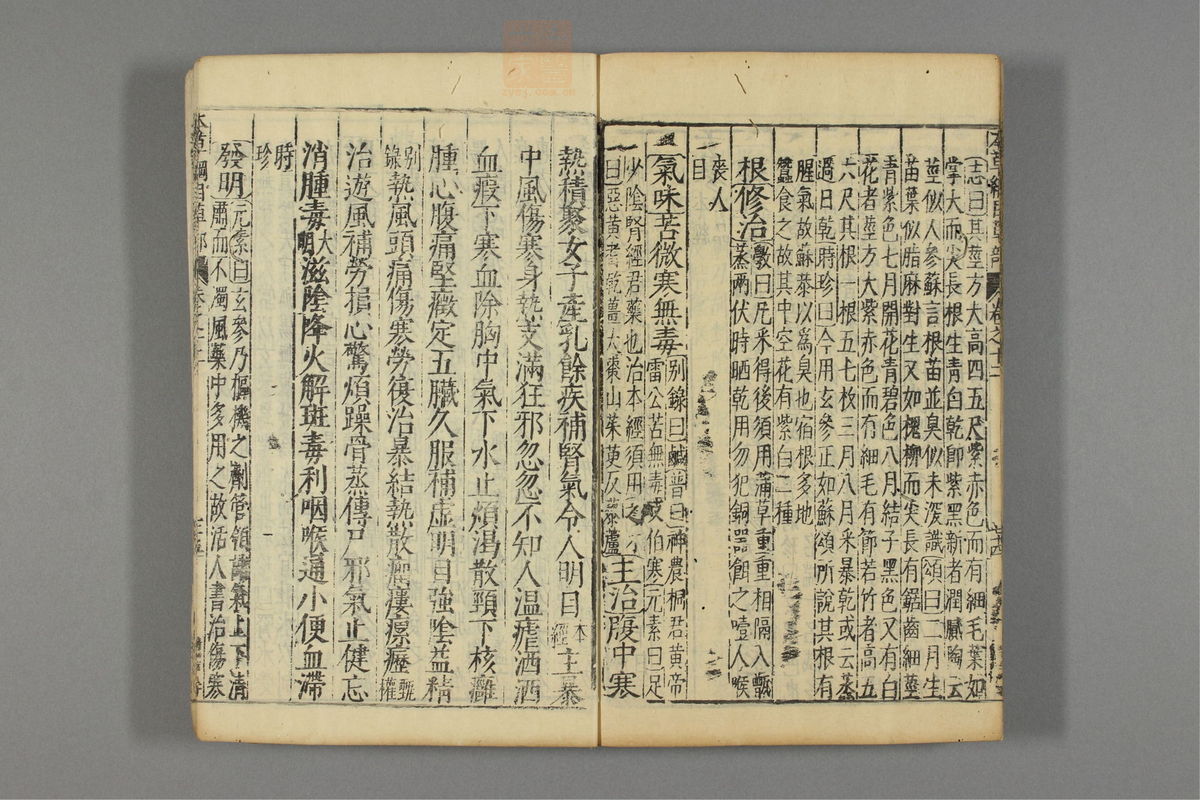 本草綱目草部 卷之十二
志曰其莖方大高四五尺紫赤色而有細毛葉如
掌大而尖長根生青白乾即紫黑新者潤膩陶云
莖似人參蘇言根苗並臭似未深識頌曰二月生
苗葉似脂麻對生又如槐柳而尖長有鋸齒細莖
青紫色七月開花青碧色八月結子黑色又有白
花者莖方大紫赤色而有細毛有節若竹者高五
六尺其根一根五七枚三月八月采暴乾或云蒸
過日乾時珍曰今用玄參正如蘇頌所說其根有
腥氣故蘇恭以為臭也宿根多地
蠶食之故其中空花有紫白二種
根修治斆曰凡采得後須用蒲草重重相隔入甑
蒸兩伏時晒乾用勿犯銅器餌之噎人喉
喪人
目
氣味苦微寒無毒別錄曰鹹普曰神農桐君黃帝
雷公苦無毒岐伯寒元素曰足
少陰腎經君藥也治本經須用之
曰惡黃耆乾薑大棗山茱萸反藜蘆主治腹中寒
熱積聚女子產乳餘疾補腎氣令人明目本經主暴
中風傷寒身熱支滿狂邪忽忽不知人溫瘧洒洒
血瘕下寒血除胸中氣下水止煩渴散頸下核癰
腫心腹痛堅癥定五臟久服補虛明目強陰益精
別錄熱風頭痛傷寒勞復治暴結熱散瘤瘻瘰癧甄權
治遊風補勞損心驚煩躁骨蒸傳尸邪氣止健忘
消腫毒大明滋陰降火解斑毒利咽喉通小便血滯
時珍
發明元素曰玄參乃樞機之劑管領諸氣上下清
肅而不濁風藥中多用之故活人書治傷寒
本草綱目草部 卷之十二